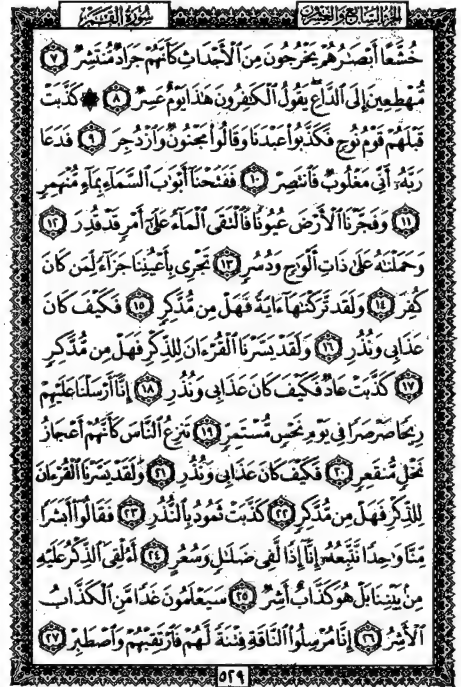 سُورَةُ القَمَرِ
الجزء السابع والعشرون
خُشَّعًا أَبْصَـٰرُهُمْ يَخْرُجُونَ مِنَ ٱلْأَجْدَاثِ كَأَنَّهُمْ جَرَادٌ مُّنتَشِرٌ ٧
مُّهْطِعِينَ إِلَى ٱلدَّاعِ يَقُولُ ٱلْكَـٰفِرُونَ هَـٰذَا يَوْمٌ عَسِرٌ ٨ ۞ كَذَّبَتْ
قَبْلَهُمْ قَوْمُ نُوحٍ فَكَذَّبُوا۟ عَبْدَنَا وَقَالُوا۟ مَجْنُونٌ وَٱزْدُجِرَ ٩ فَدَعَا
رَبَّهُۥٓ أَنِّى مَغْلُوبٌ فَٱنتَصِرْ ١٠ فَفَتَحْنَآ أَبْوَٰبَ ٱلسَّمَآءِ بِمَآءٍ مُّنْهَمِرٍ
١١ وَفَجَّرْنَا ٱلْأَرْضَ عُيُونًا فَٱلْتَقَى ٱلْمَآءُ عَلَىٰٓ أَمْرٍ قَدْ قُدِرَ ١٢
وَحَمَلْنَـٰهُ عَلَىٰ ذَاتِ أَلْوَٰحٍ وَدُسُرٍ ١٣ تَجْرِى بِأَعْيُنِنَا جَزَآءً لِّمَن كَانَ
كُفِرَ ١٤ وَلَقَد تَّرَكْنَـٰهَآ ءَايَةً فَهَلْ مِن مُّدَّكِرٍ ١٥ فَكَيْفَ كَانَ
عَذَابِى وَنُذُرِ ١٦ وَلَقَدْ يَسَّرْنَا ٱلْقُرْءَانَ لِلذِّكْرِ فَهَلْ مِن مُّدَّكِرٍ
١٧ كَذَّبَتْ عَادٌ فَكَيْفَ كَانَ عَذَابِى وَنُذُرِ ١٨ إِنَّآ أَرْسَلْنَا عَلَيْهِمْ
رِيحًا صَرْصَرًا فِى يَوْمِ نَحْسٍ مُّسْتَمِرٍّ ١٩ تَنزِعُ ٱلنَّاسَ كَأَنَّهُمْ أَعْجَازُ
نَخْلٍ مُّنقَعِرٍ ٢٠ فَكَيْفَ كَانَ عَذَابِى وَنُذُرِ ٢١ وَلَقَدْ يَسَّرْنَا ٱلْقُرْءَانَ
لِلذِّكْرِ فَهَلْ مِن مُّدَّكِرٍ ٢٢ كَذَّبَتْ ثَمُودُ بِٱلنُّذُرِ ٢٣ فَقَالُوٓا۟ أَبَشَرًا
مِّنَّا وَٰحِدًا نَّتَّبِعُهُۥٓ إِنَّآ إِذًا لَّفِى ضَلَـٰلٍ وَسُعُرٍ ٢٤ أَءُلْقِىَ ٱلذِّكْرُ عَلَيْهِ
مِنۢ بَيْنِنَا بَلْ هُوَ كَذَّابٌ أَشِرٌ ٢٥ سَيَعْلَمُونَ غَدًا مَّنِ ٱلْكَذَّابُ
ٱلْأَشِرُ ٢٦ إِنَّا مُرْسِلُوا۟ ٱلنَّاقَةِ فِتْنَةً لَّهُمْ فَٱرْتَقِبْهُمْ وَٱصْطَبِرْ ٢٧
٥٢٩